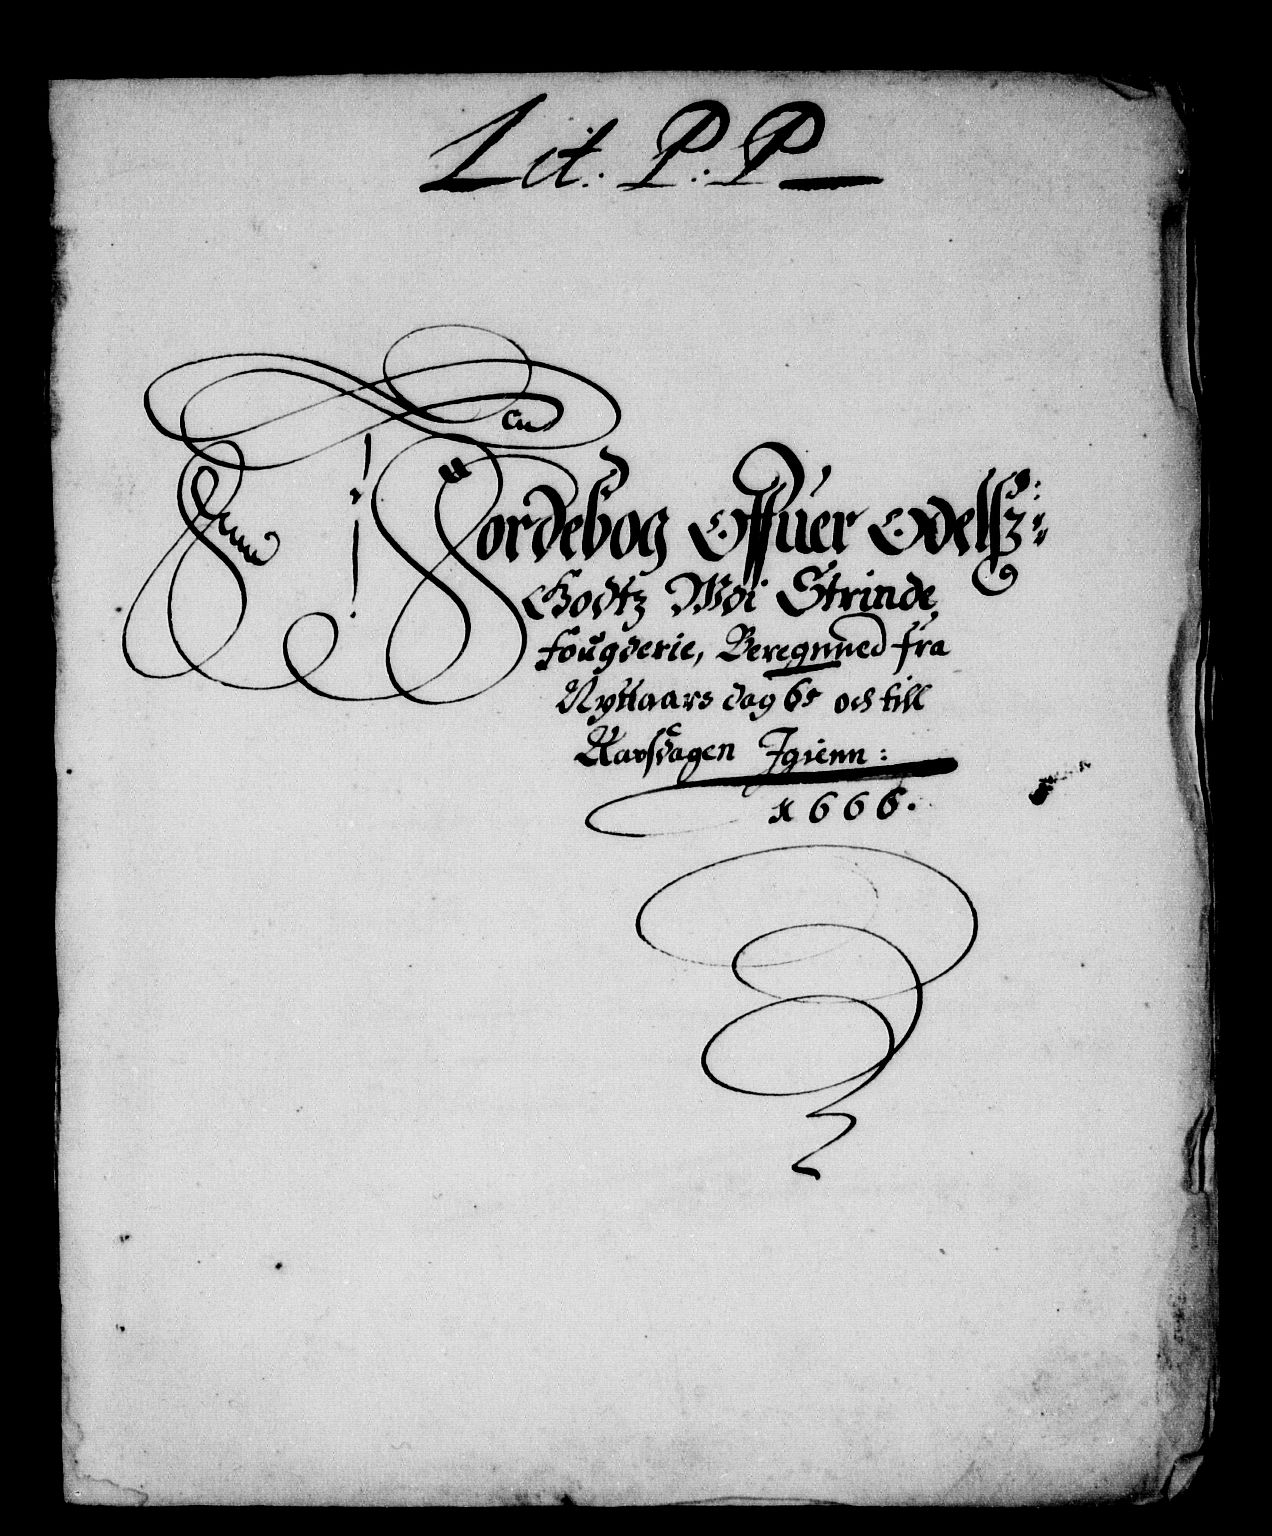 Lit: P: P
Jordebog Offuer Odelsz:
Godtz Wdi Strinde
fougderie, Beregnned fra
Nyttaars dag 65 och till
Aarsdagen Jgienn:
1666.